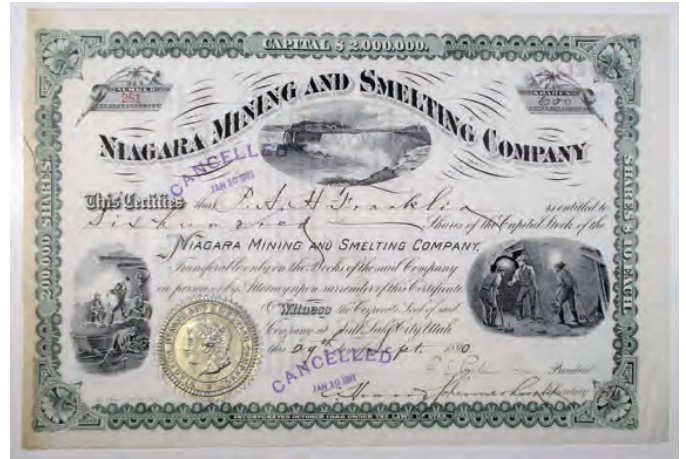 CAPITAL $ 2,000,000.
NUMBER
281
SHARES
600
NIAGARA MINING AND SMELTING COMPANY
CANCELLED
JAN 10 1891
This Certifies that P. A. H. Franklin is entitled to
Six hundred Shares of the Capital Stock of the
NIAGARA MINING AND SMELTING COMPANY,
Transferable only on the Books of the said Company
in person or by Attorney upon surrender of this Certificate
Witness the Corporate Seal of said
Company at Salt Lake City Utah.
this 29th day of Sept. 1890
President
CANCELLED
JAN 10 1891
Secretary
200,000 SHARES.
SHARES $ 10 EACH.
INCORPORATED OCTOBER UNDER THE LAWS OF UTAH.